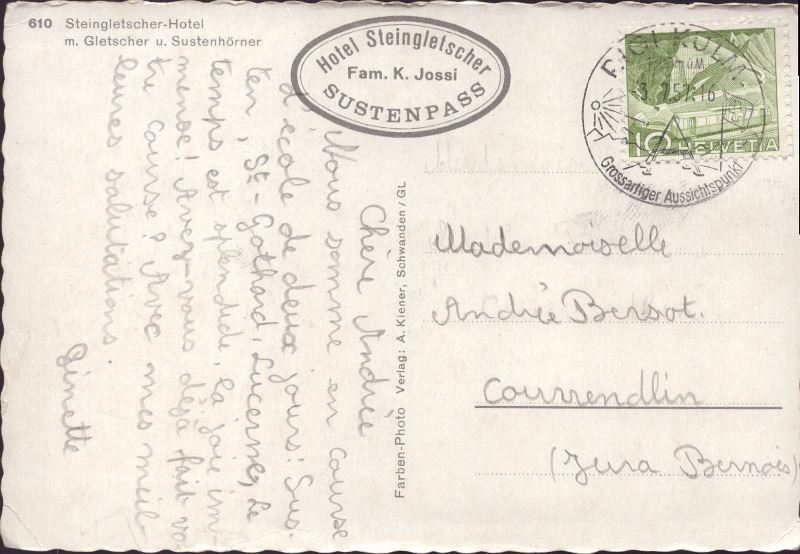 610 Steingletscher-Hotel
m. Gletscher u. Sustenhörner
Hotel Steingletscher
Fam. K. Jossi
SUSTENPASS
RIGI KULM
10 HELVETIA
Grossartiger Aussichtspunkt
Chère Andrée
Nous somme en course
d'école de deux jours: Sus-
ten, St-Gothard, Lucerne, Le
temps est splendide, la joie im-
mense! Avez-vous déjà fait vo-
tre course? Avec mes meil-
leures salutations.
Ginette
Farben-Photo Verlag: A. Kiener, Schwanden/GL
Mademoiselle
Andrée Bersot.
Courrendlin
(Jura Bernois)